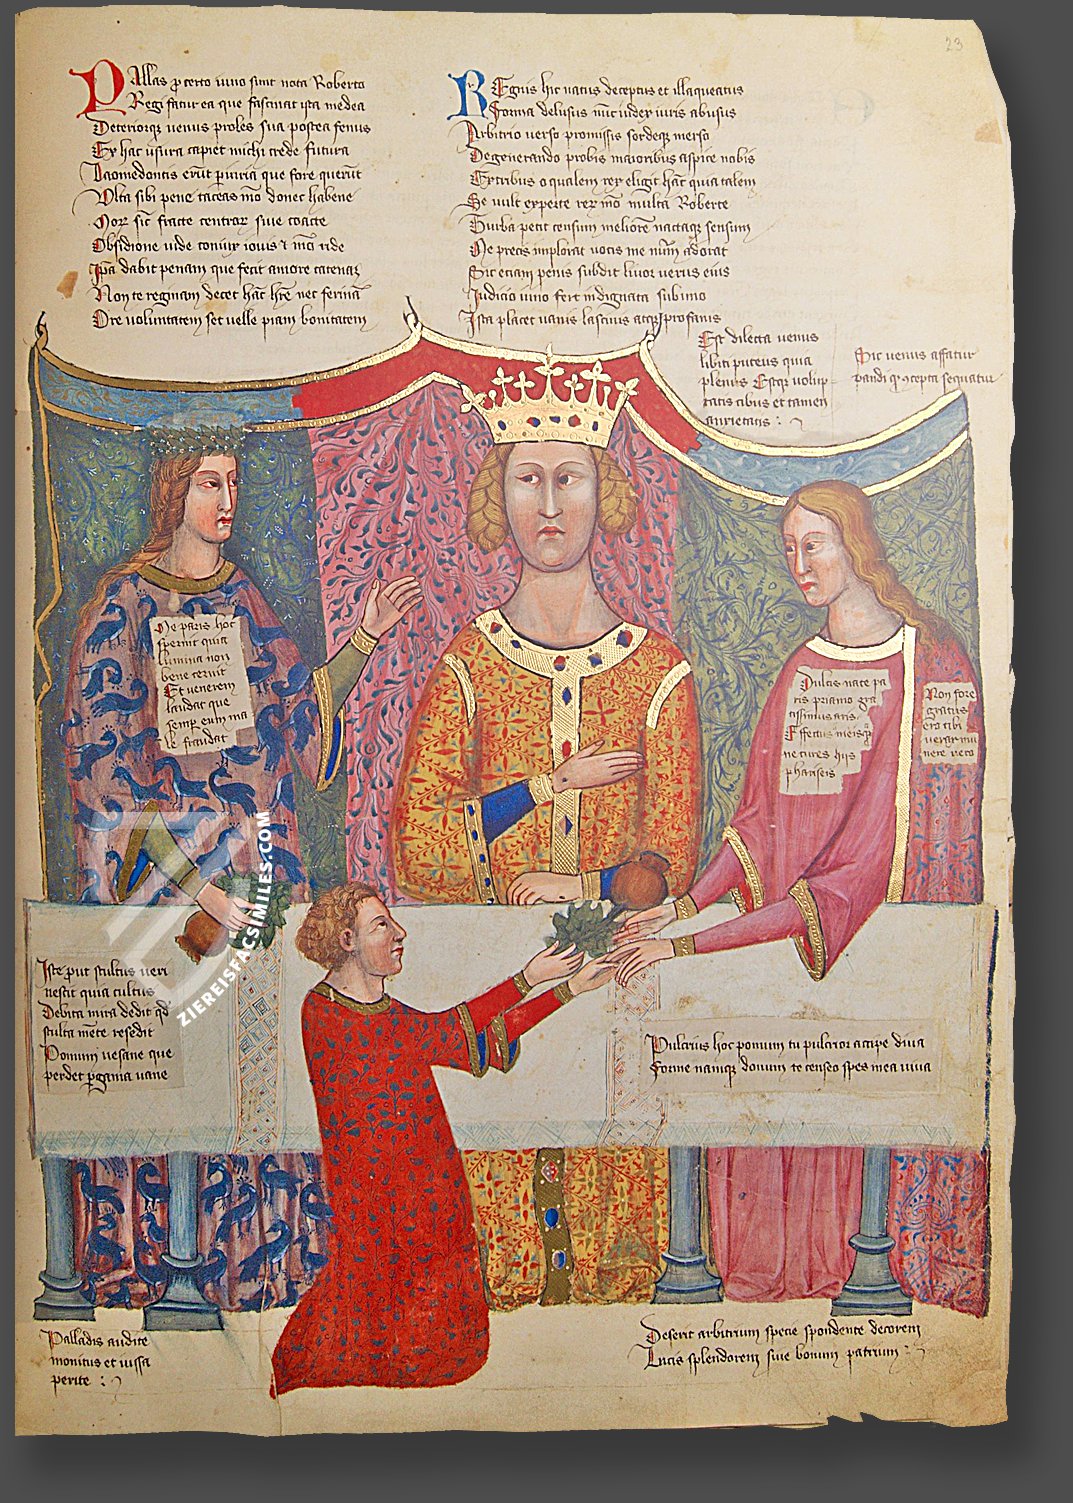 23
Pallas p certo uiuo sunt nota Roberto
Regi fatur ea que fascinat ista medea
Deteriorqz uenus proles sua postea fenus
Ex hac usura capiet michi crede futura
Laomedontis erut piuria que fore querut
Vlta sibi pene taceas mo donec habene
sic fracte centrar siue coacte
Obsidione uide coniux iouis mo uide
Ipa dabit penam que fecit amore catenaz
Non te reginam decet hac hre nec ferina
Ore voluntatem set uelle piam bonitatem
REgius hic natus deceptus et illaqueatus
Forma delusus nuc iudex iuris abusus
Arbitrio uerso promissis sordeqz merso
Degenerando probis maioribus asspice nobis
Extribus o qualem rex eligit hac quia talem
Se uult experte rex mo multa Roberte
Turba petit censum meliore nactaqz sensum
Ne precis implorat uocis me adorat
Sic etiam penis subdit liuor uerus eius
Iudicio uiuo fert indignata subimo
Ista placet uanis lasciuis atqz profanis
Est dilecta uenus
libiti puteus quia
plenus Estqz volup
tatis cibus et tamen
Sic uenus affatur
pandi qz cepta sequatur
Ne paris hoc
spernit quia
lumina non
bene cernit
Et uenerem
laudat que
semp eum ma
le fraudat
Dulcis nate pa
ris priamo gra
tissimus aris
Effectus meisqz
ne cures hijs
phariseis
Non fore
gratus
ero tibi
uerax mu
nere ueto
Iste put stultus ueri
nescit quia cultus
Debita mira dedit qd
stulta mete resedit
Pomum uesane que
perdet pgama uane
Pulcrius hoc pomum tu pulcrior accipe diua
Forme namqz donum te censeo spes mea uiua
Palladis audite
monitus et iussa
perite :
Deserit arbitrium specie spondente decorem
Lucis splendorem siue bonum patrium :
ZIEREISFACSIMILES.COM